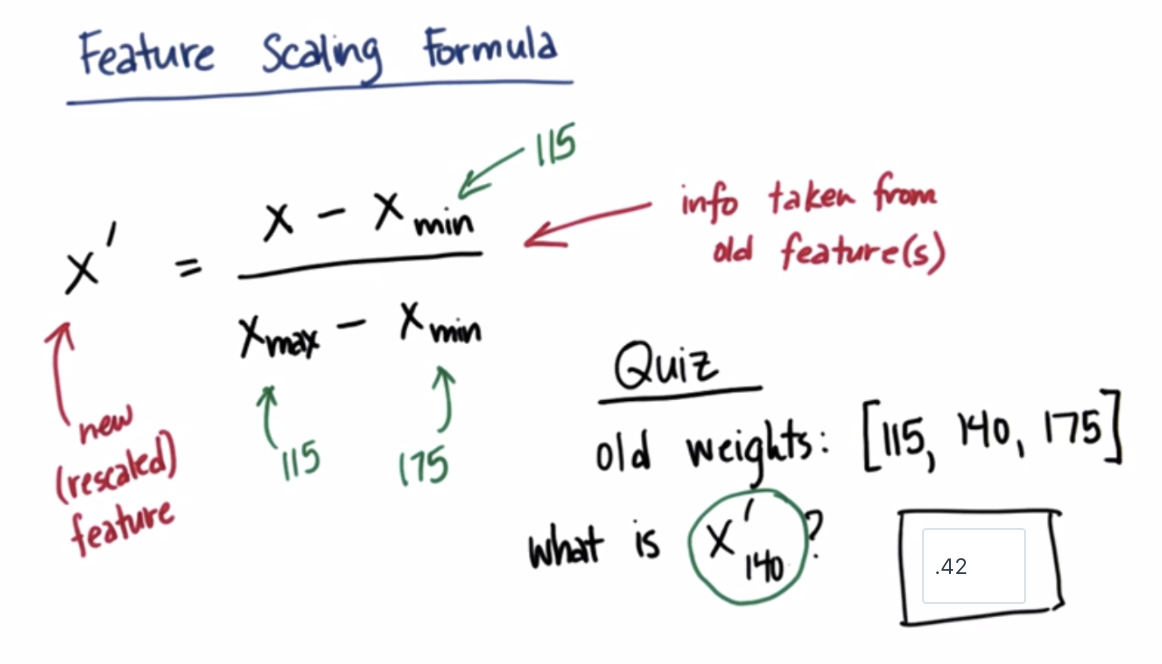 Feature Scaling Formula
115
x' = x - x min
x max - x min
info taken from
old feature(s)
new
(rescaled)
feature
115
175
Quiz
old weights: [115, 140, 175]
what is x' 140 ?
.42